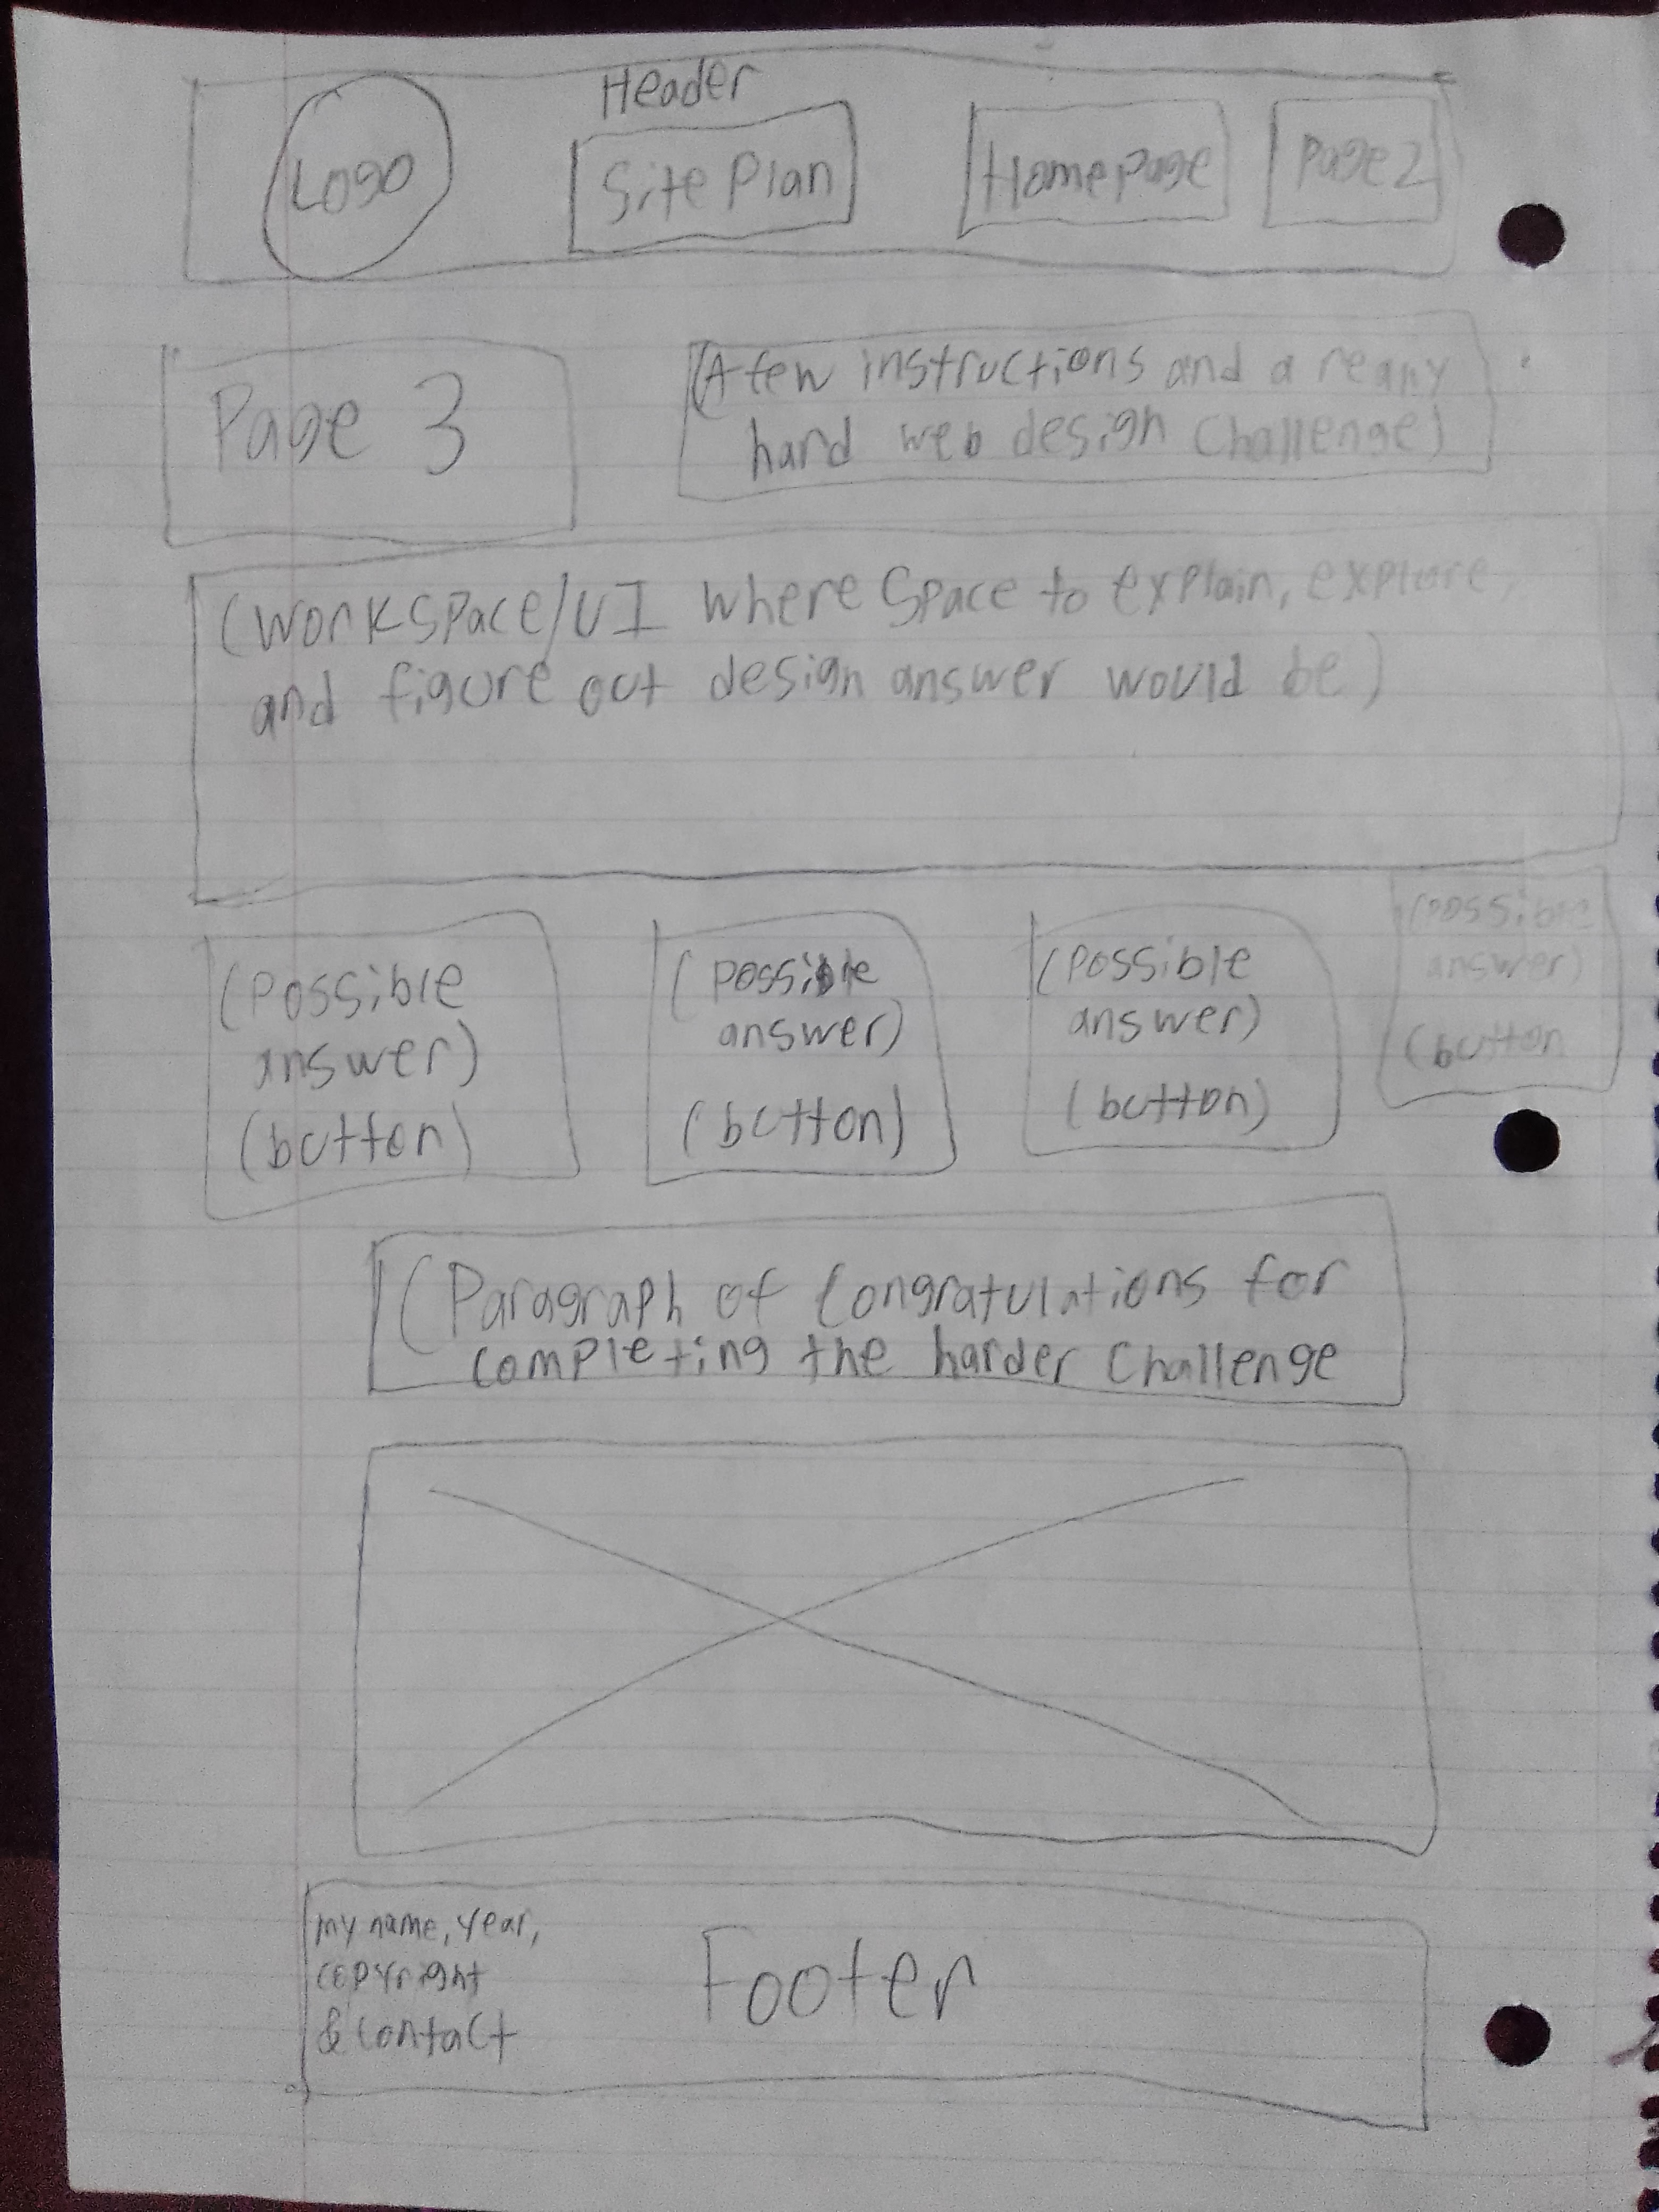 Header
Logo
Site Plan
Homepage
Page 2
Page 3
(A few instructions and a really
hard web design challenge)
(Workspace/UI where space to explain, explore,
and figure out design answer would be)
(possible
answer)
(button)
(possible
answer)
(button)
(possible
answer)
(button)
(possible
answer)
(button
(Paragraph of Congratulations for
completing the harder challenge
my name, year,
copyright
& contact
Footer